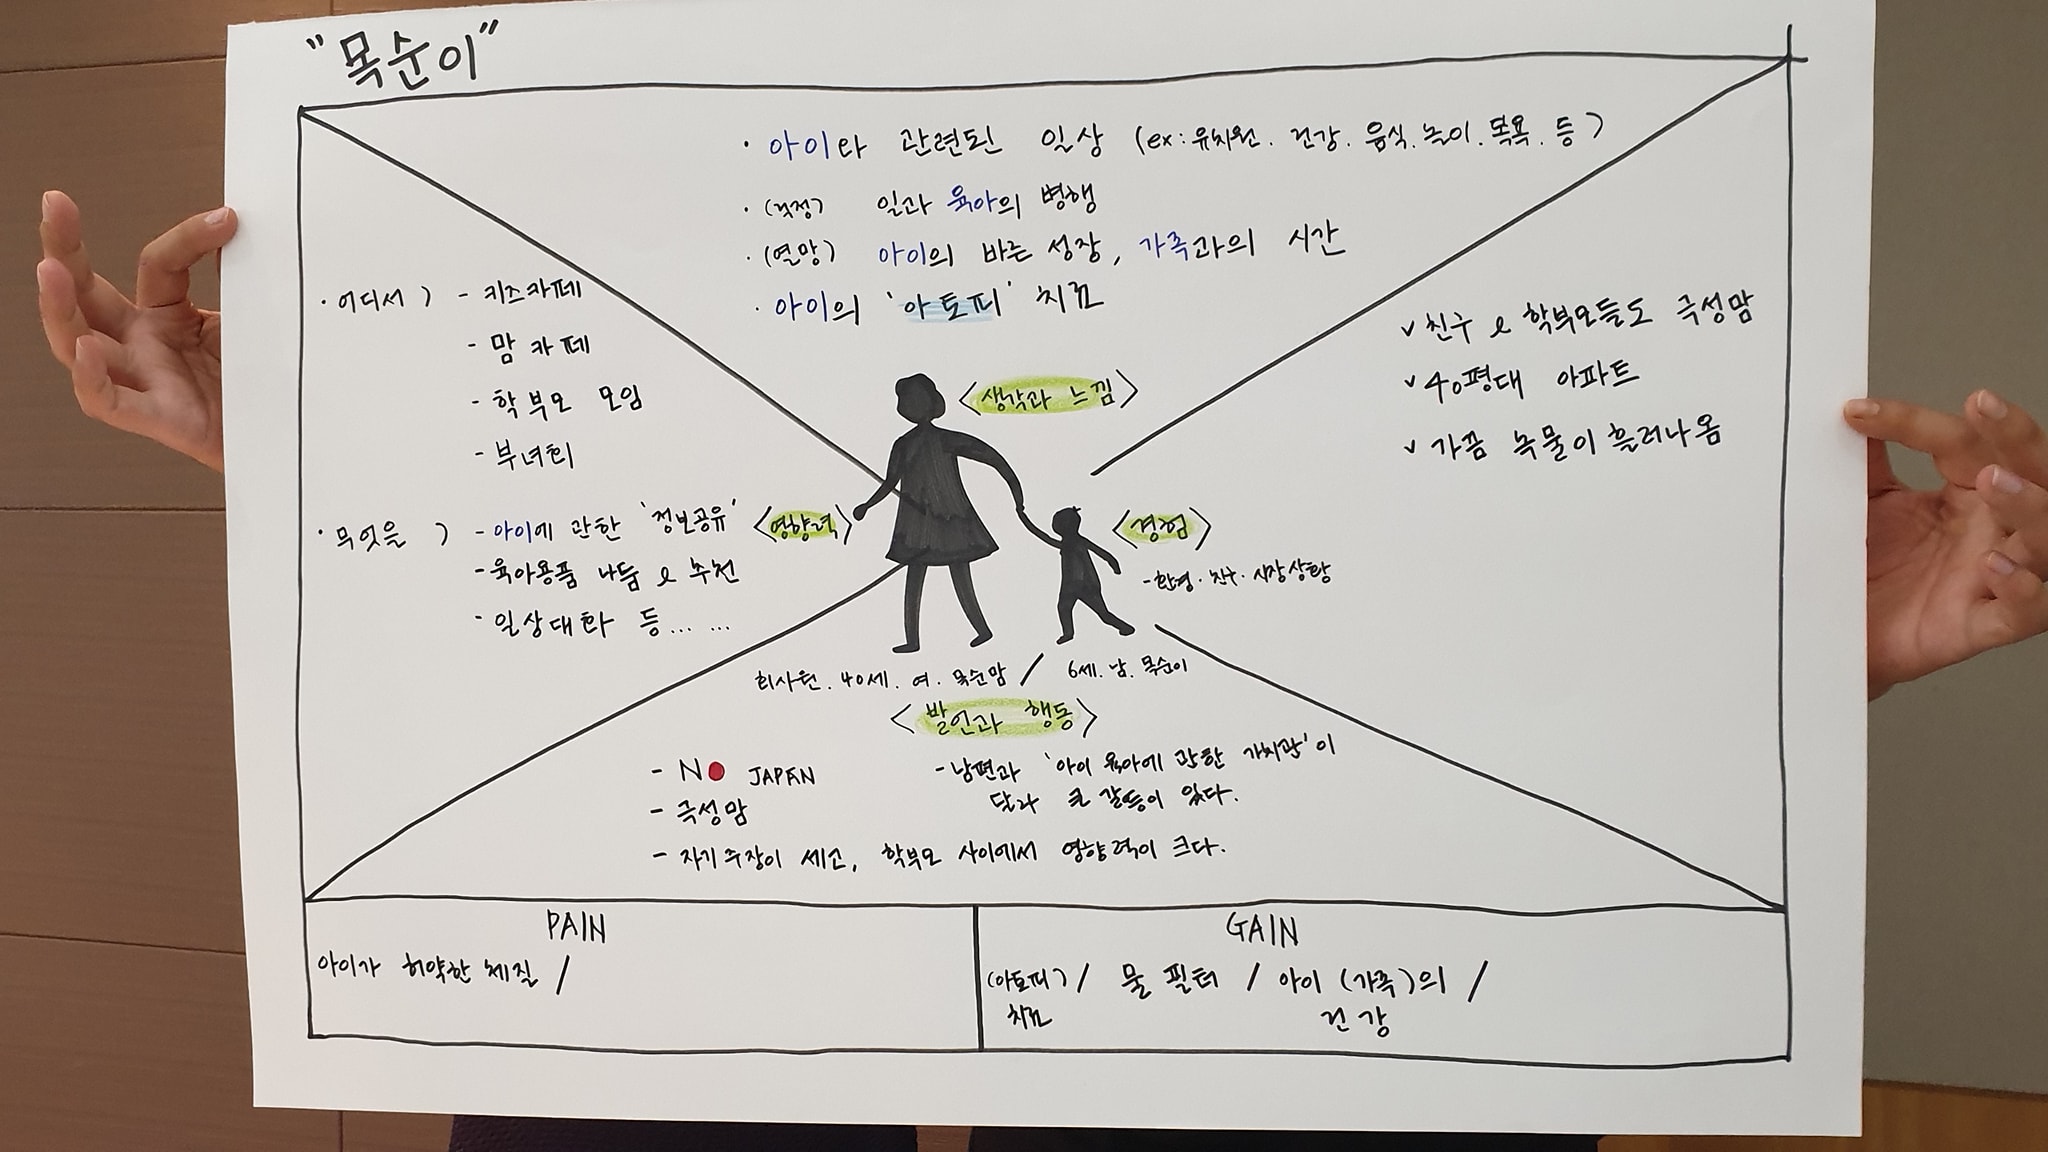 "목순이"
· 아이와 관련된 일상 (ex: 유치원. 건강. 음식. 놀이. 목욕. 등)
· (걱정) 일과 육아의 병행
· (열망) 아이의 바른 성장, 가족과의 시간
· 아이의 '아토피' 치료
<생각과 느낌>
· 어디서) - 키즈카페
- 맘카페
- 학부모 모임
- 부녀회
· 무엇을) - 아이에 관한 '정보공유'
- 육아용품 나눔 & 추천
- 일상대화 등... ...
<영향력>
✓ 친구 & 학부모들도 극성맘
✓ 40평대 아파트
✓ 가끔 녹물이 흘러나옴
<경험>
- 환경 · 친구 · 시장상황
회사원. 40세. 여. 목순맘 / 6세. 남. 목순이
<발언과 행동>
- NO JAPAN
- 극성맘
- 자기주장이 세고, 학부모 사이에서 영향력이 크다.
- 남편과 '아이 육아에 관한 가치관'이
달라 큰 갈등이 있다.
PAIN
아이가 허약한 체질 /
GAIN
(아토피) / 물 필터 / 아이 (가족)의 /
치료 건강